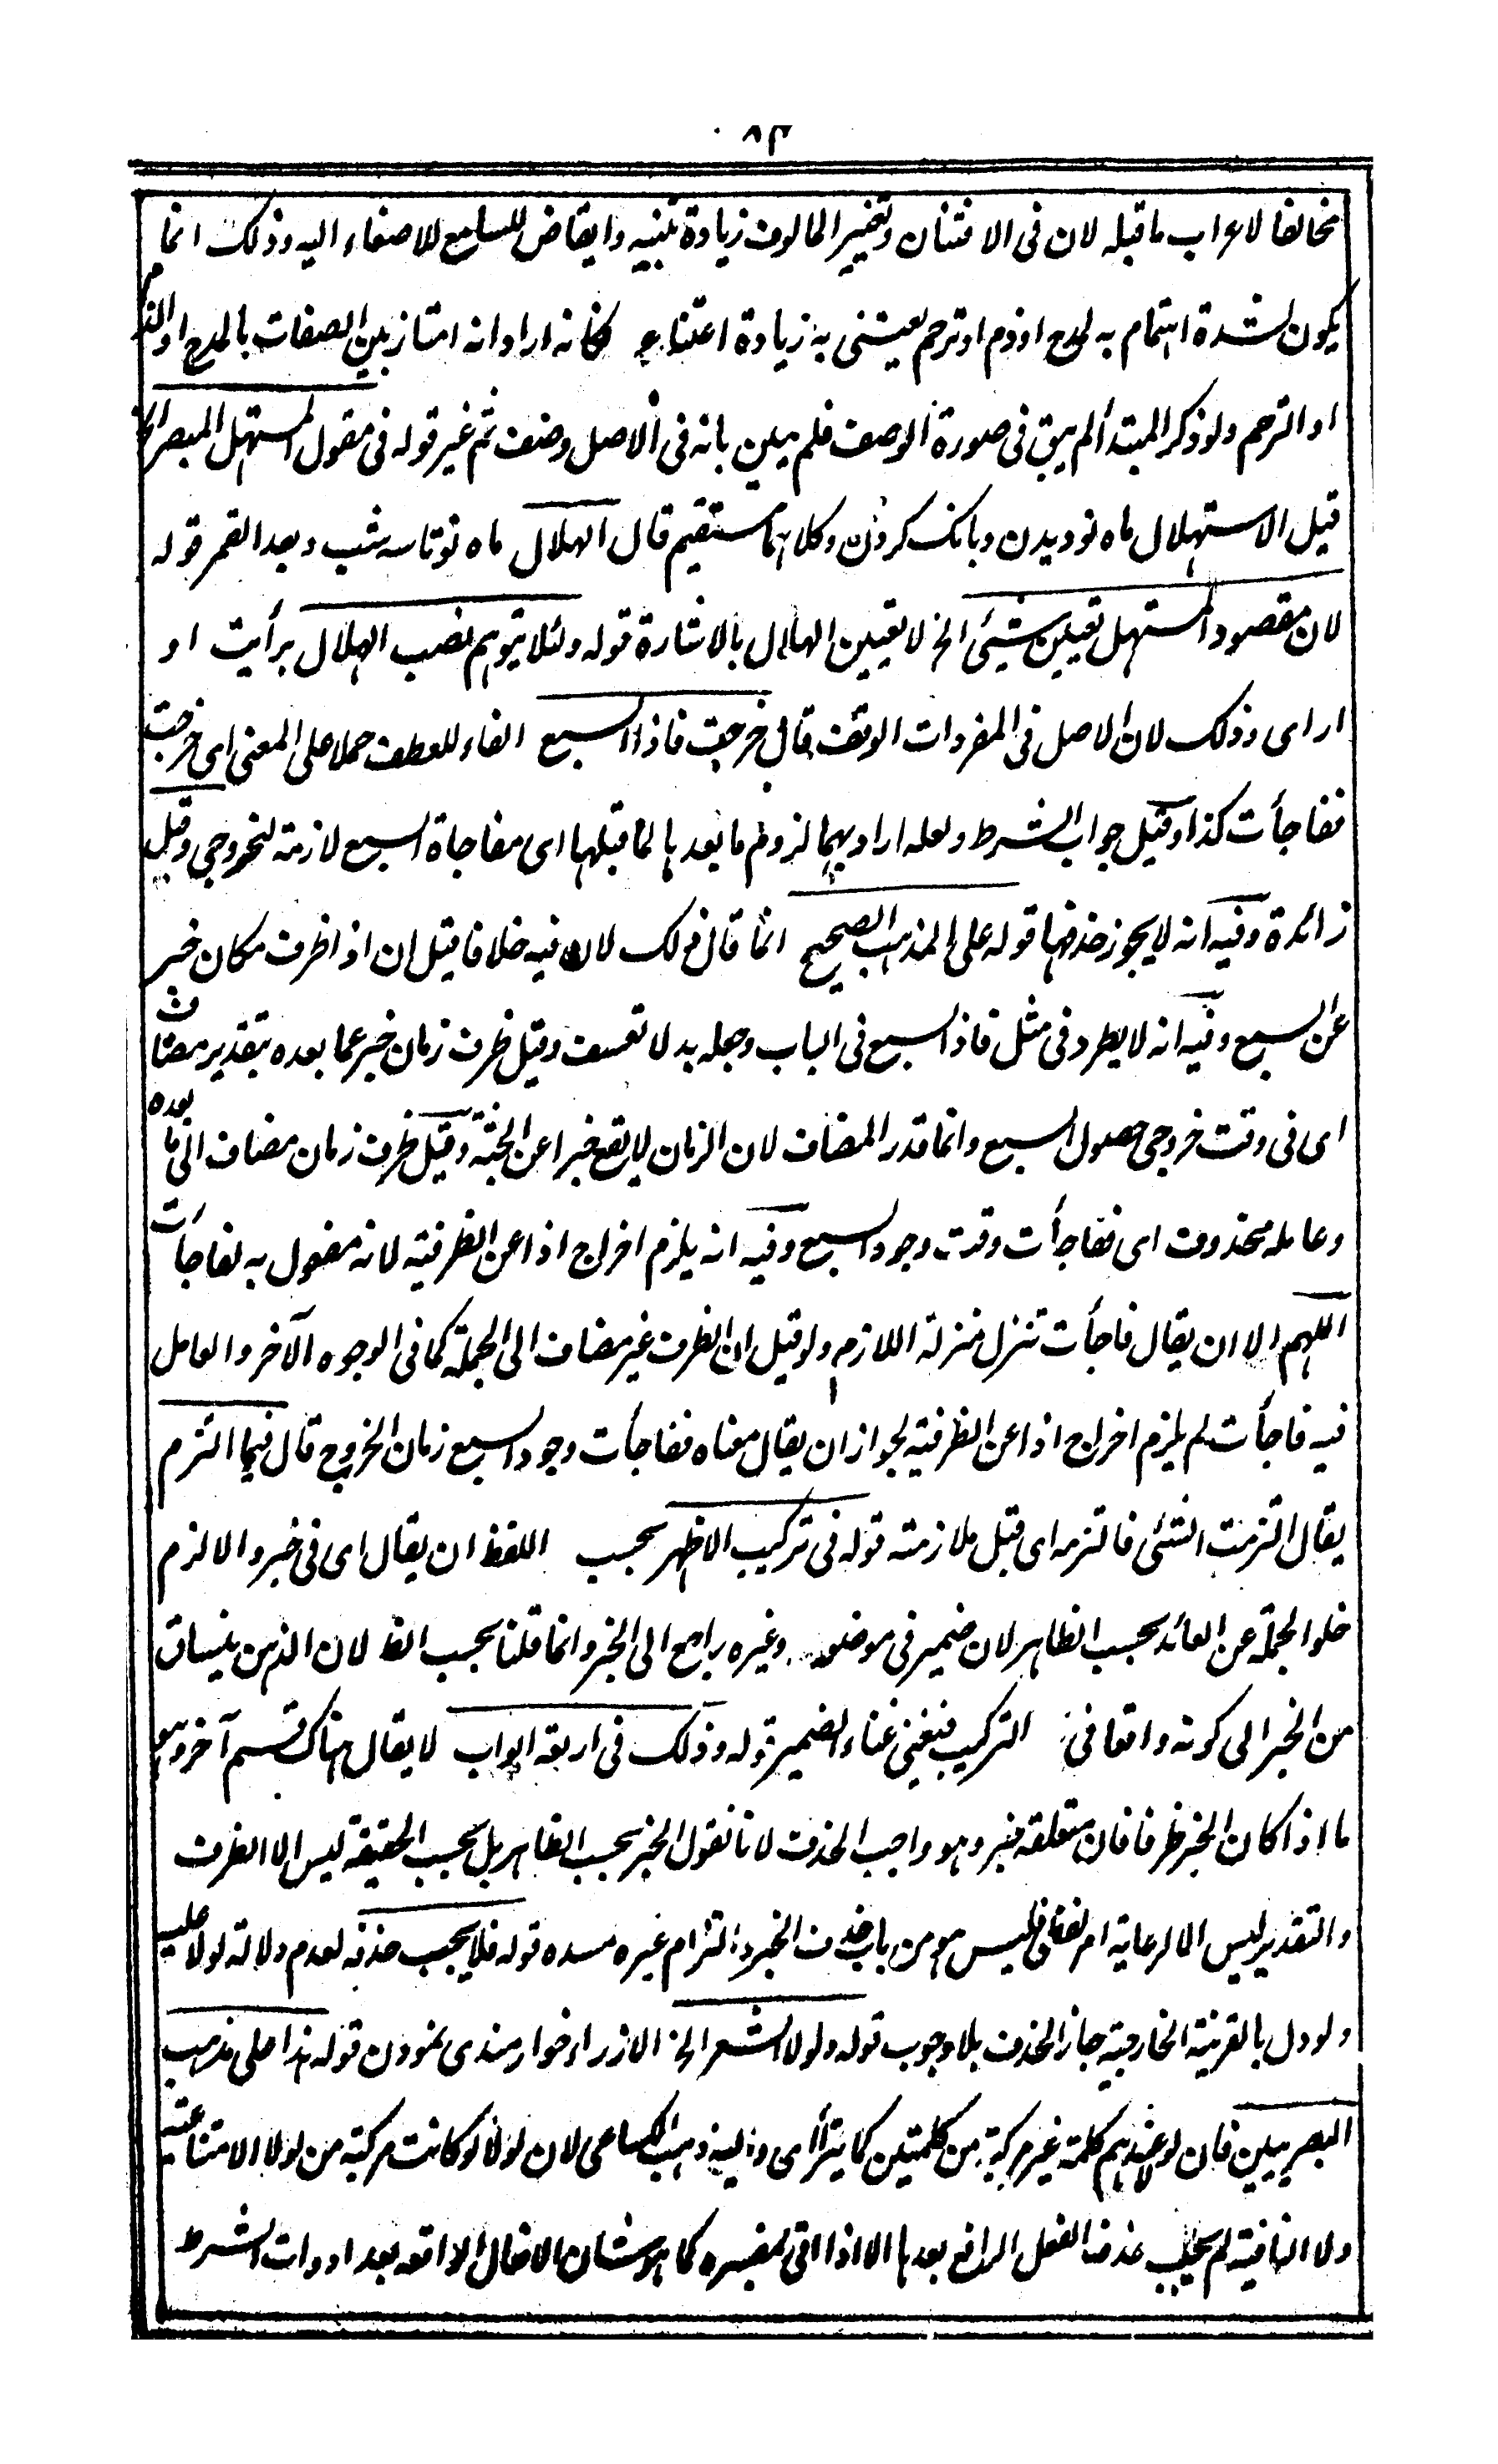 ٨٣
مخالفا لاعراب ماقبله لان فى الافتنان وتغيير المالوف زيادة تنبيه وايقاض للسامع للاصغاء اليه وذلك انما
يكون لشدة اهتمام به لمدح او ذم او ترحم يعتنى به زيادة اعتناء فكانه اراد انه امتاز بين الصفات بالمدح او الذم
او الترحم ولو ذكر المبتدأ لم يبق فى صورة الوصف فلم يبين بانه فى الاصل وصف ثم غير قوله فى مقول المستهل المبصر الخ
قيل الاستهلال ماه نو ديدن وبانك كردن وكلاهما مستقيم قال الهلال ماه نو تا سه شب وبعد القمر قوله
لان مقصود المستهل تعيين شيئى الخ لا تعيين الهلال بالاشارة قوله ولئلا يتوهم نصب الهلال برأيت او
ار اى وذلك لان الاصل فى المفردات الوقف قال خرجت فاذا السبع الفاء للعطف حملا على المعنى اى خرجت
ففاجأت كذا وقيل جواب الشرط ولعله اراد بهما لزوم ما بعدها لما قبلها اى مفاجاة السبع لازمة لخروجى وقيل
زائدة وفيه انه لا يجوز حذفها قوله على المذهب الصحيح انما قال ذلك لان فيه خلافا قيل ان اذا ظرف مكان خبر
عن السبع وفيه انه لا يطرد فى مثل فاذا السبع فى الباب وجعله بدلا تعسف وقيل ظرف زمان خبر عما بعده بتقدير مضاف
اى فى وقت خروجى حصول السبع وانما قدر المضاف لان الزمان لا يقع خبرا عن الجثة وقيل ظرف زمان مضاف الى ما بعده
وعامله محذوف اى ففاجأت وقت وجود السبع وفيه انه يلزم اخراج اذا عن الظرفية لانه مفعول به لفاجأت
اللهم الا ان يقال فاجأت تنزل منزلة اللازم ولو قيل ان الظرف غير مضاف الى الجملة كما فى الوجوه الآخر والعامل
فيه فاجأت لم يلزم اخراج اذا عن الظرفية لجواز ان يقال معناه ففاجأت وجود السبع زمان الخروج قال فيما التزم
يقال التزمت الشئى فالتزمه اى قبل ملازمته قوله فى تركيب الاظهر بحسب اللفظ ان يقال اى فى خبر والا لزم
خلو الجملة عن العائد بحسب الظاهر لان ضمير فى موضعه وغيره راجع الى الخبر وانما قلنا بحسب الظ لان الذهن ينساق
من الخبر الى كونه واقعا فى التركيب فيغنى غناء الضمير قوله وذلك فى اربعة ابواب لا يقال هناك قسم آخر وهو
ما اذا كان الخبر ظرفا فان متعلقه خبر وهو واجب الحذف لانا نقول الخبر بحسب الظاهر بل بحسب الحقيقة ليس الا الظرف
والتقدير ليس الا لرعاية امر لفظى فليس هو من باب حذف الخبر والتزام غيره مسده قوله فلا يجب حذفه لعدم دلالة لولا عليه
ولو دل بالقرينة الخارجية جاز الحذف بلا وجوب قوله ولولا الشعر الخ الازراء خوارمندى نمودن قوله هذا على مذهب
البصريين فان لولا عندهم كلمة غير مركبة من كلمتين كما يترأى واليه ذهب الكساعى لان لولا لو كانت مركبة من لو الامتناعية
ولا النافية لم يجب حذف الفعل الرافع بعدها الا اذا اتى بمفسره كما هو شان الافعال الواقعة بعد ادوات الشرط